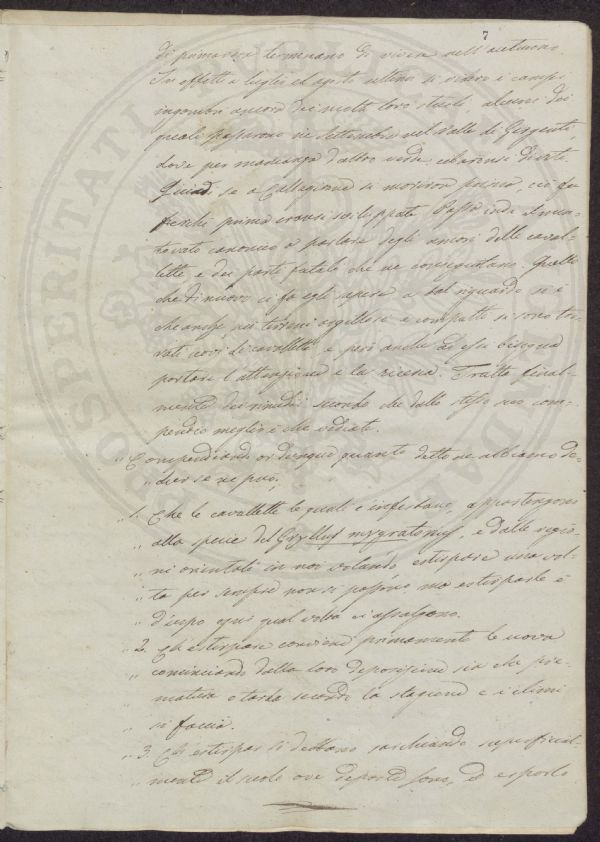 7
di primavera terminano di vivere nell'autunno.
In effetti a luglio ed agosto ultimo si videro i campi
ingombri ancora di molti loro stuoli, alcuni dei
quali passarono in Settembre nel Valle di Girgenti,
dove per mancanza d'altro verde,
Quindi se a Caltagirone si morirono prima, ciò fu
perché prima eransi sviluppate. Passa indi il men-
tovato canonico a parlare degli amori delle caval-
lette, e dei parti fatali che ne conseguitano. Quello
che di nuovo ci fa egli sapere a tal riguardo si è
che anche nei terreni argillosi e compatti si sono tro-
vati uovi di cavallette e però anche ad essi bisogna
portare l'attenzione e la ricerca. Tratta final-
mente dei rimedii secondo che dallo stesso suo com-
pendio meglio è che vediate.
" Compendiando or dunque quanto detto ne abbiamo de-
" dur se ne può,
" 1. Che le cavallette le quali c'infestano, appartengono
" alla specie del Gryllus mygratorius, e dalle regio-
" ni orientali in noi volando estirpare una vol-
" ta per sempre non si possono ma estirparle è
" d'uopo ogni qual volta ci assalgono.
" 2. Ch'estirpare conviene primamente le uova
" cominciando dalla loro deposizione sia che pre-
" matura o tarda secondo la stagione e i climi
" si faccia.
" 3. Ch'estirpar si debbano raschiando superficial-
" mente il suolo ove deposte sono, ed esporle
PROSPERITATI